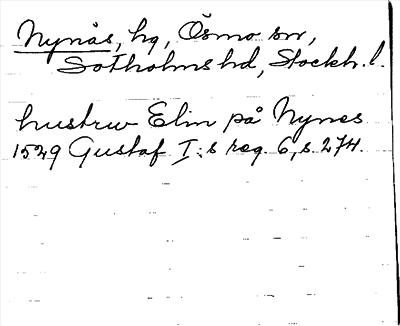 Nynäs, hg, Ösmo sn,
Sotholms hd, Stockh. l.
hustrw Elin på Nynes
1529 Gustaf I:s reg. 6, s. 274.